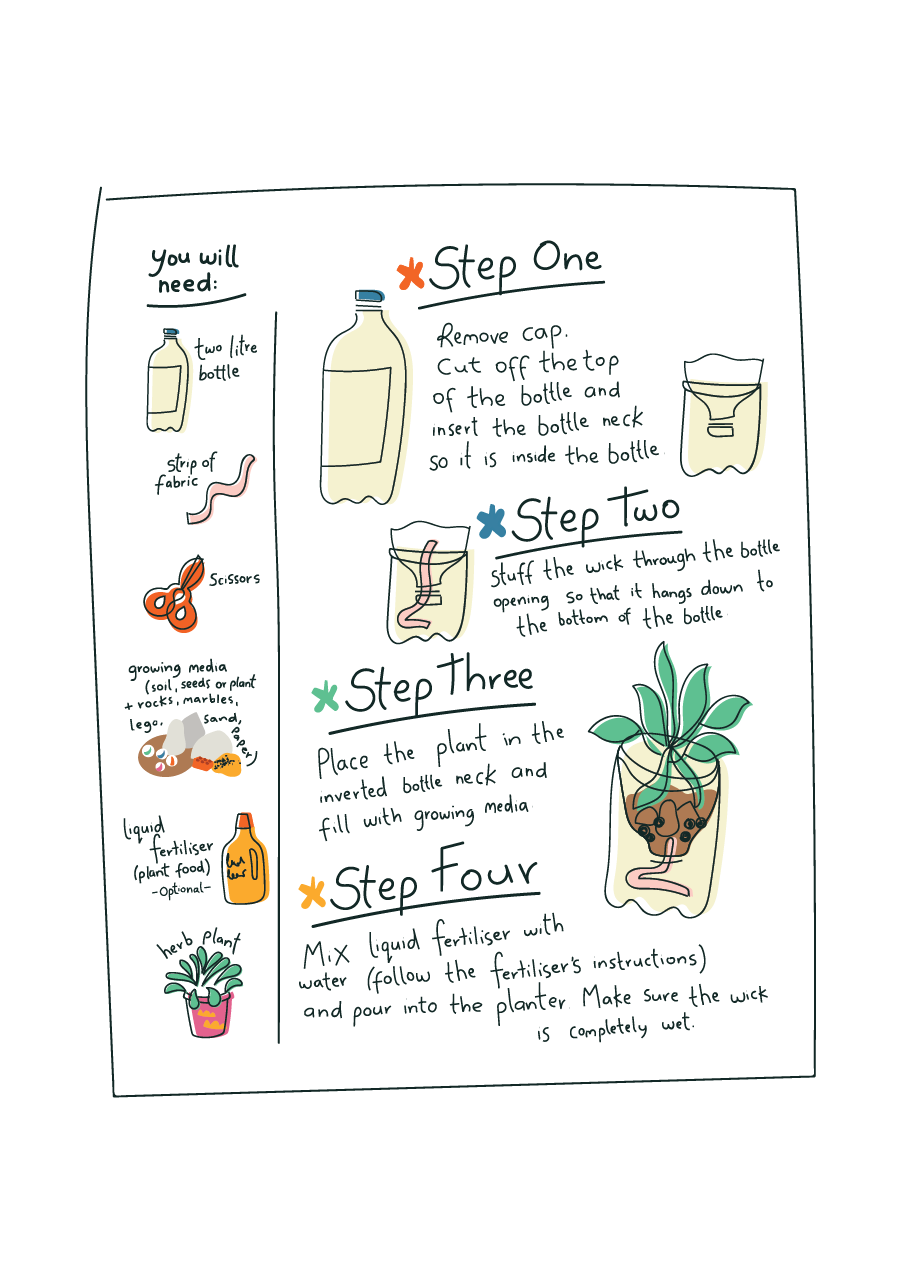 You will
need:
two litre
bottle
strip of
fabric
Scissors
growing media
(soil, seeds or plant
+ rocks, marbles,
lego, sand,
paper)
liquid
fertiliser
(plant food)
-Optional-
herb plant
Step One
Remove cap.
Cut off the top
of the bottle and
insert the bottle neck
so it is inside the bottle.
Step Two
Stuff the wick through the bottle
opening so that it hangs down to
the bottom of the bottle
Step Three
Place the plant in the
inverted bottle neck and
fill with growing media.
Step Four
Mix liquid fertiliser with
water (follow the fertiliser's instructions)
and pour into the planter. Make sure the wick
is completely wet.